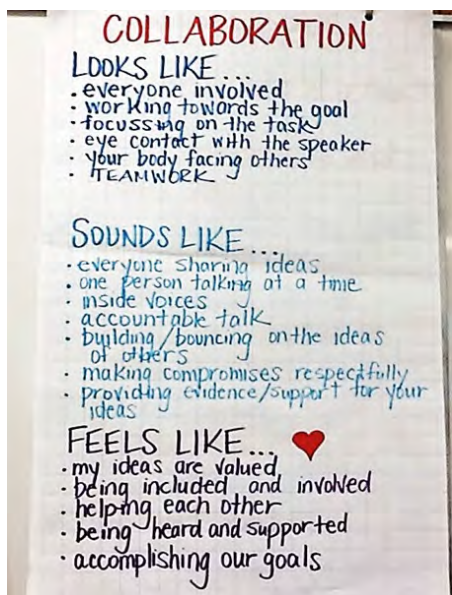 COLLABORATION
LOOKS LIKE...
• everyone involved
• working towards the goal
• focussing on the task
• eye contact with the speaker
• your body facing others
• TEAMWORK
SOUNDS LIKE...
• everyone sharing ideas
• one person talking at a time
• inside voices
• accountable talk
• building/bouncing on the ideas
of others
• making compromises respectfully
• providing evidence/support for your
ideas
FEELS LIKE...
• my ideas are valued
• being included and involved
• helping each other
• being heard and supported
• accomplishing our goals